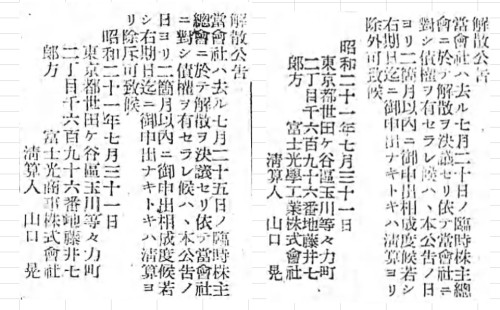 解散公告
當會社ハ去ル七月二十日ノ臨時株主總
會ニ於テ解散ヲ決議セリ依テ當會社ニ
對シ債權ヲ有セラレ候ハヽ本公告ノ日
ヨリ二箇月以內ニ御申出相成度候若シ
右期日迄ニ御申出ナキトキハ清算ヨリ
除外可致候
昭和二十一年七月三十一日
東京都世田ケ谷區玉川等々力町
二丁目千六百九十六番地藤井七
郎方 富士光學工業株式會社
清算人 山口 晃
解散公告
當會社ハ去ル七月二十五日ノ臨時株主
總會ニ於テ解散ヲ決議セリ依テ當會社
ニ對シ債權ヲ有セラレ候ハヽ本公告ノ
日ヨリ二箇月以內ニ御申出相成度候若
シ右期日迄ニ御申出ナキトキハ清算ヨ
リ除斥可致候
昭和二十一年七月三十一日
東京都世田ケ谷區玉川等々力町
二丁目千六百九十六番地藤井七
郎方 富士光商事株式會社
清算人 山口 晃